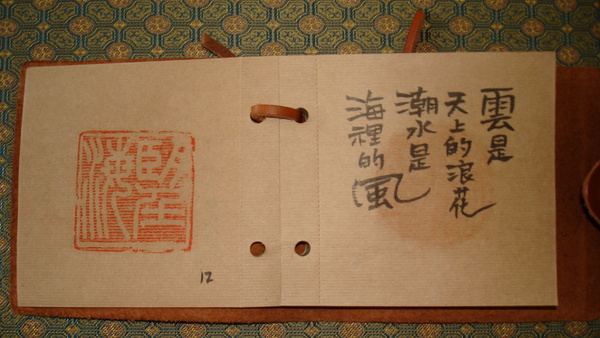 雲是
天上的浪花
潮水是
海裡的風
望海
12